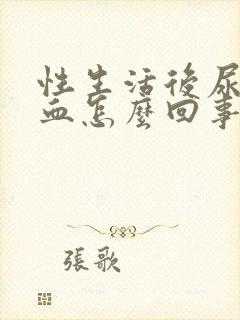 性生活後尿
血怎麼回事
張歌